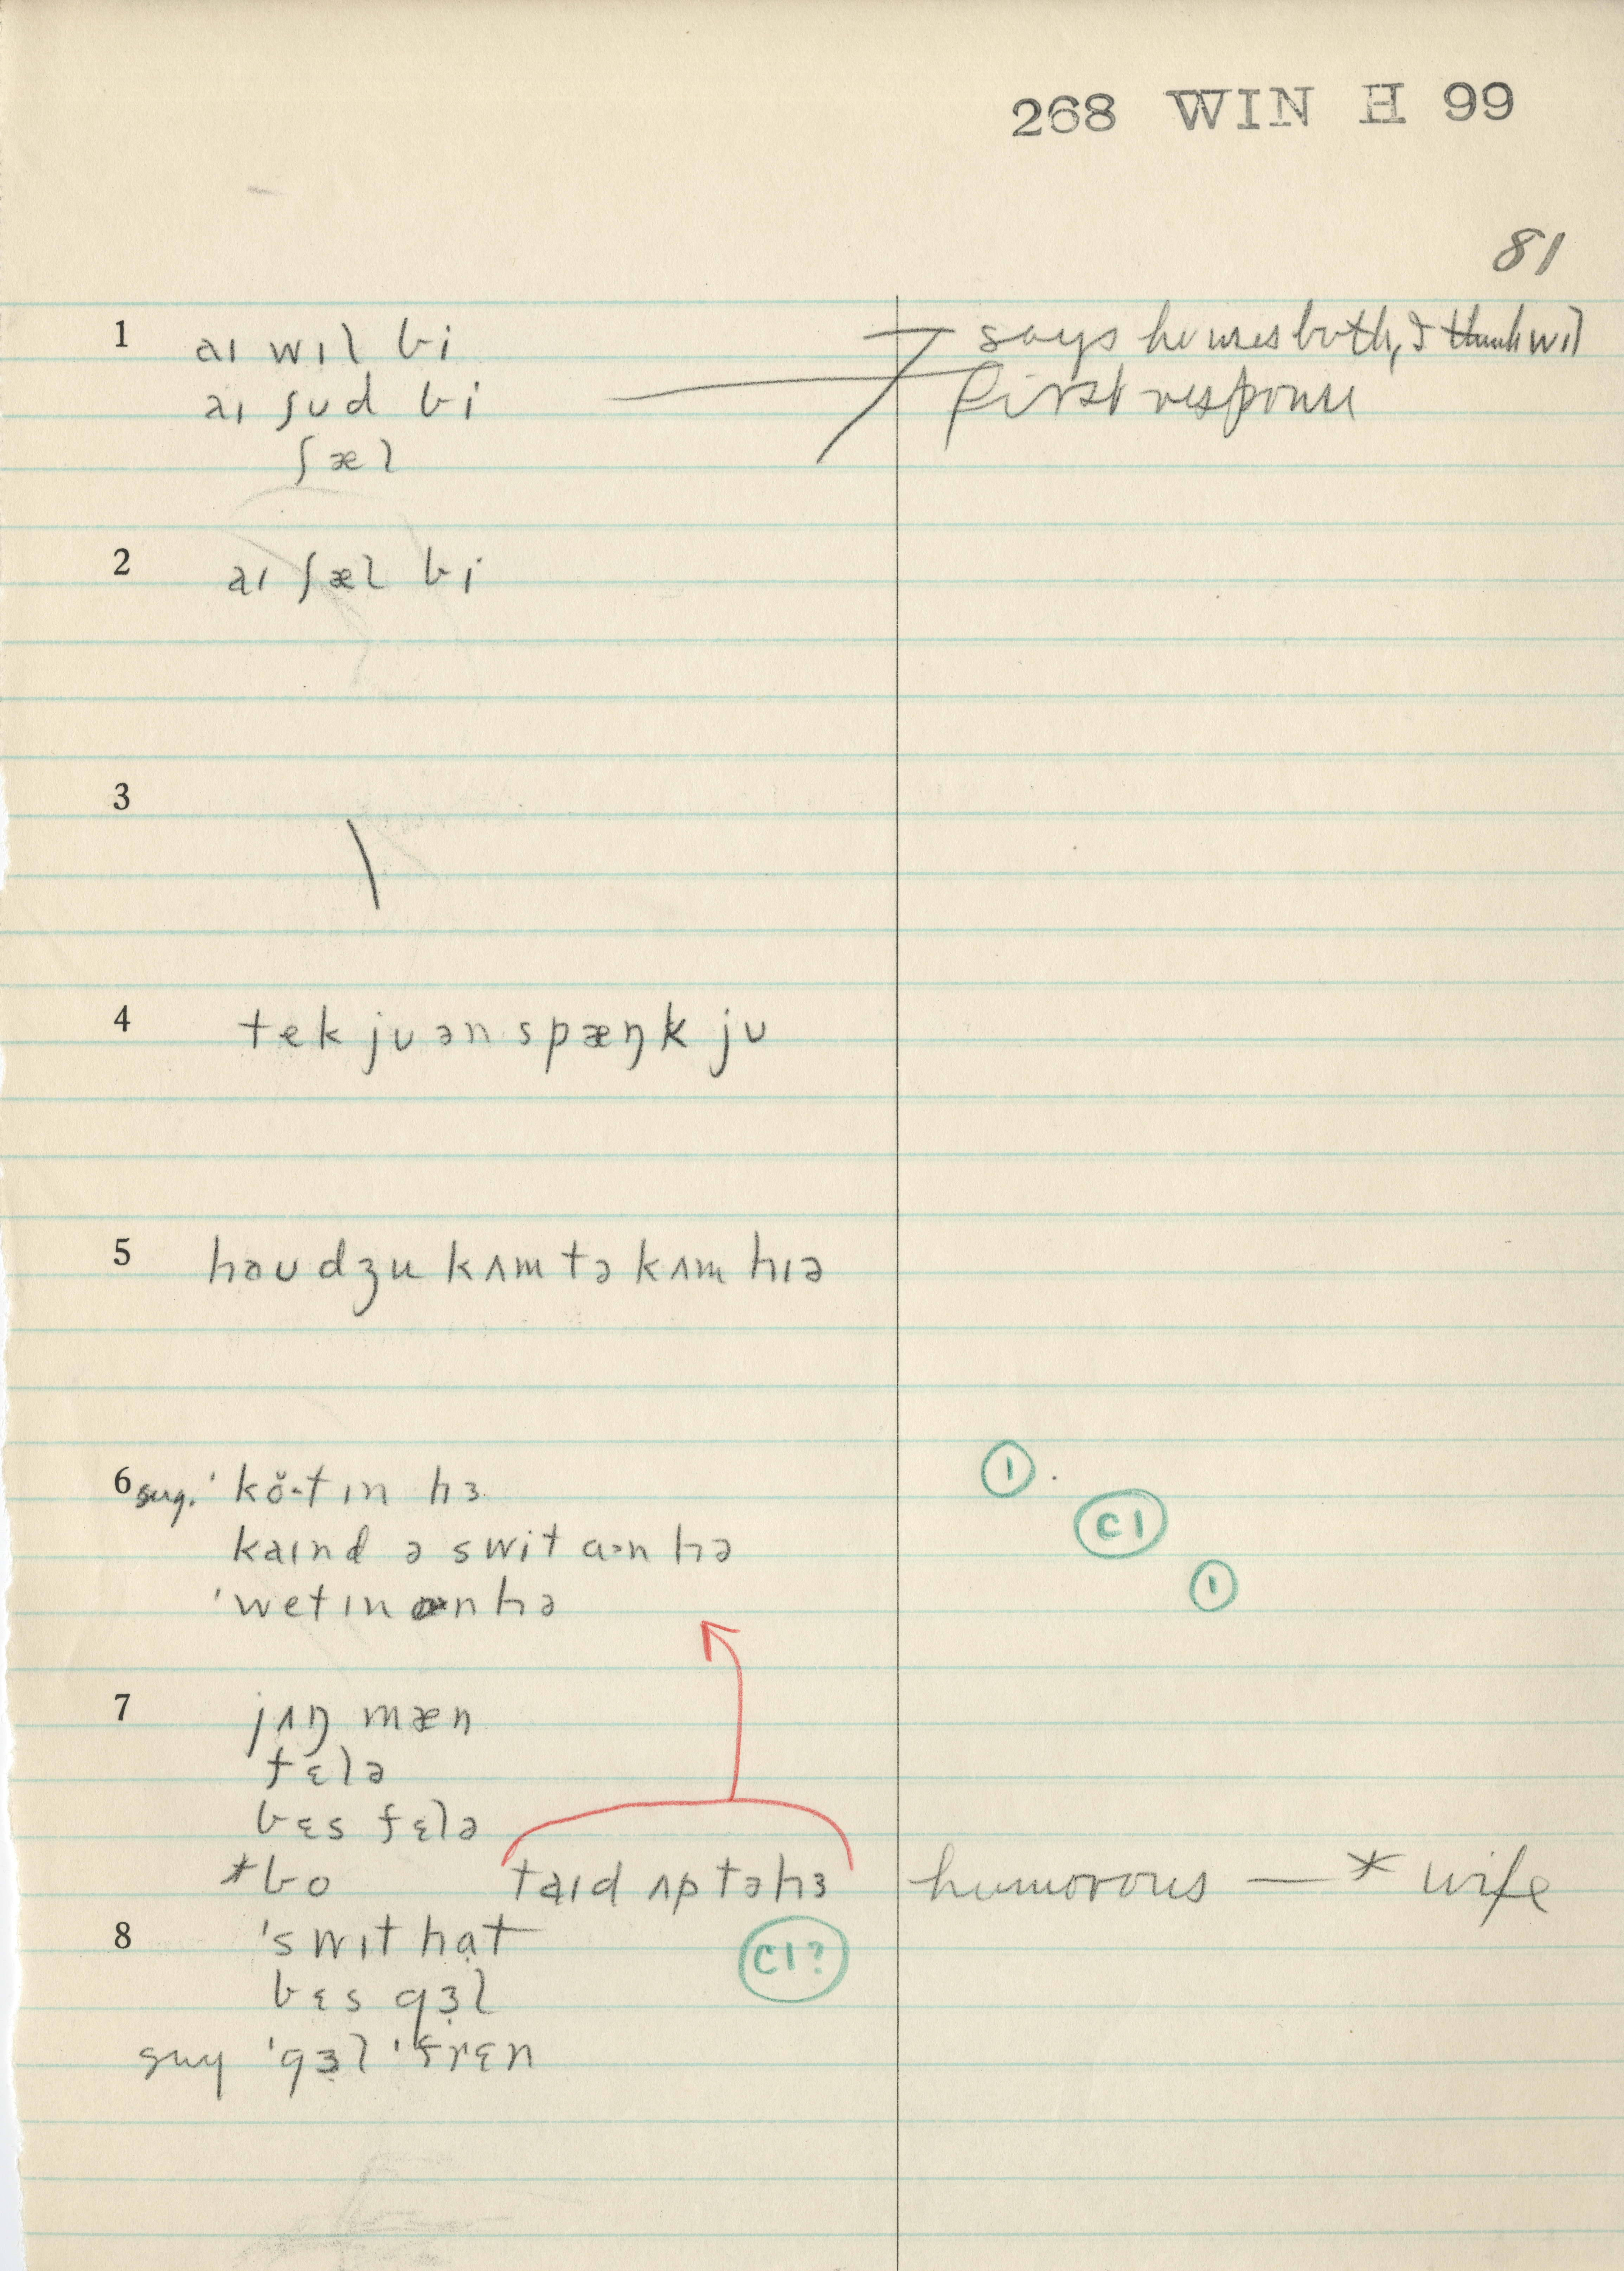 268 WIN H 99
81
1 aɪ wɪl bi says he uses both, I think wɪl
aɪ ʃʊd bi first response
ʃæl
2 aɪ ʃæl bi
3
4 tek jʊ ən spæŋk jʊ
5 həʊ dʒu kʌm tə kʌm hɪə
6 sug. ˈkŏ·tɪn hɜ ①
kaɪnd ə swit ɑ·n hə C1
ˈwetɪn ɑn hə ①
7 jʌŋ mæn
fɛlə
bɛs fɛlə
*bo taɪd ʌp tə hɜ humorous — * wife
8 ˈswɪt hɑt C1?
bɛs gɜl
sug ˈgɜl ˈfrɛn